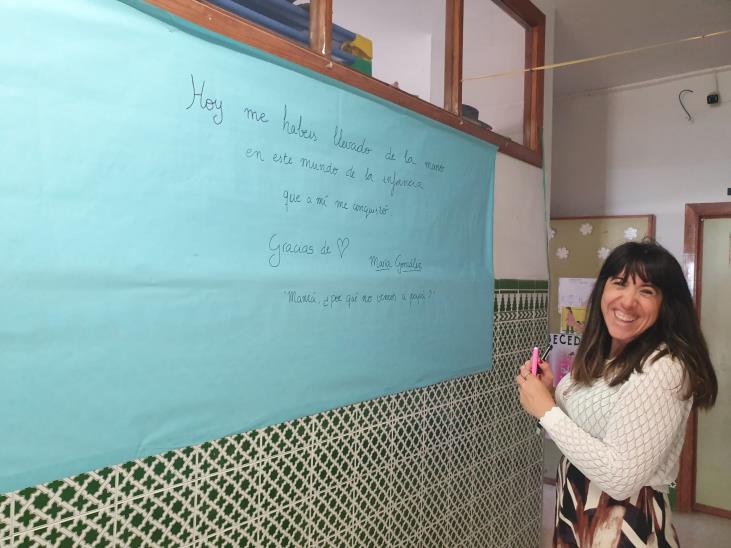 Hoy me habéis llevado de la mano
en este mundo de la infancia
que a mí me conquistó
Gracias de ♡
María González
"Mamá, ¿por qué no vemos a papá?"
BECED